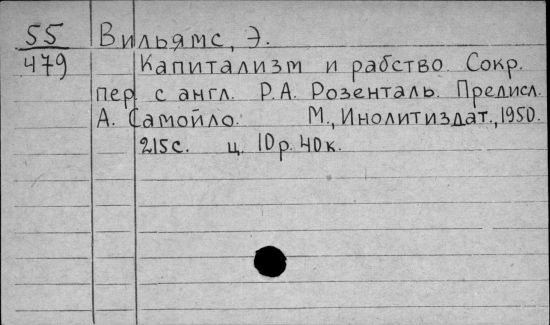 55 Вильямс, Э.
479 Капитализм и рабство. Сокр.
пер. с англ. Р.А. Розенталь. Предисл.
А. Самойло. М., Инолитиздат., 1950.
215с. ц. 10р. 40к.